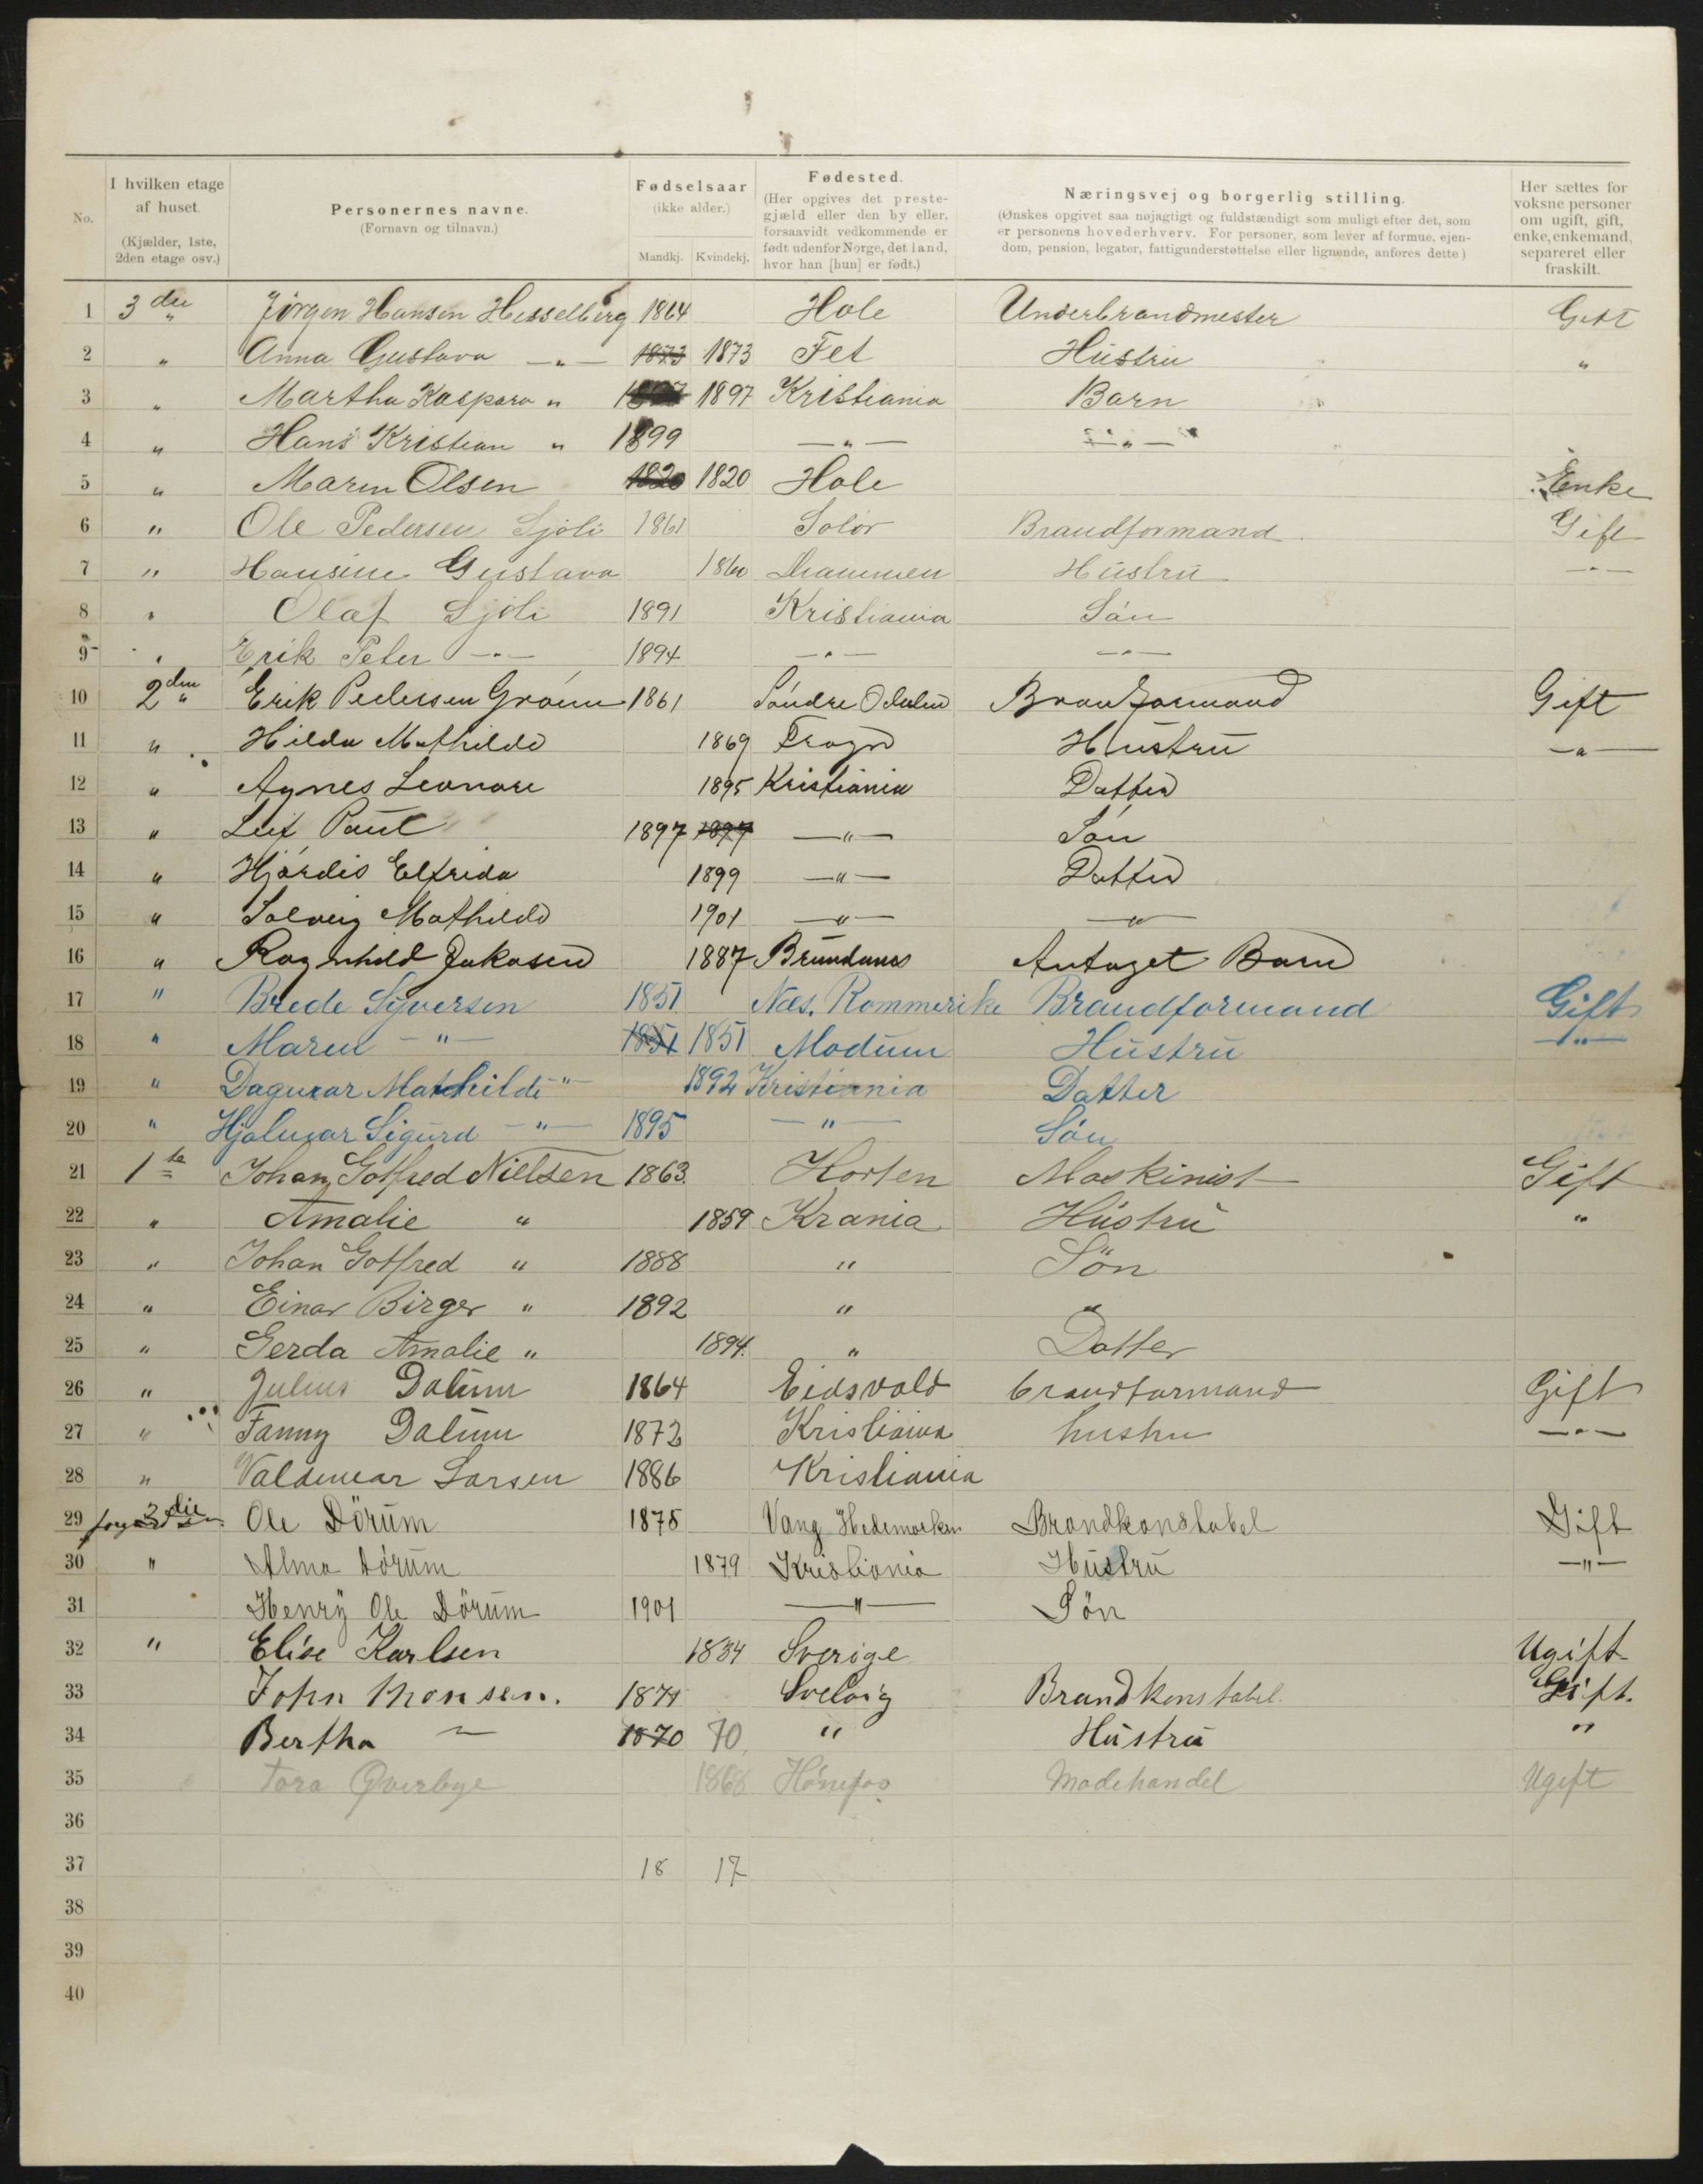 No.
I hvilken etage af huset. (Kjælder, 1ste, 2den etage osv.)
Personernes navne. (Fornavn og tilnavn.)
Fødselsaar (ikke alder.) Mandkj. Kvindekj.
Fødested. (Her opgives det prestegjæld eller den by eller, forsaavidt vedkommende er født udenfor Norge, det land, hvor han [hun] er født.)
Næringsvej og borgerlig stilling. (Ønskes opgivet saa nøjagtigt og fuldstændigt som muligt efter det, som er personens hovederhverv. For personer, som lever af formue, ejendom, pension, legater, fattigunderstøttelse eller lignende, anføres dette)
Her sættes for voksne personer om ugift, gift, enke, enkemand, separeret eller fraskilt.
1 3die " Jörgen Hansen Hesselberg 1864 Hole Underbrandmester Gift
2 " Anna Gustava —"— 1873 1873 Fet Hustru "
3 " Martha Kaspara " 1897 Kristiania Barn
4 " Hans Kristian " 1899 —"— —"—
5 " Maren Olsen 1820 1820 Hole Enke
6 " Ole Pedersen Sjöli 1861 Solör Brandformand Gift
7 " Hansine Gustava 1860 Drammen Hustru —"—
8 " Olaf Sjöli 1891 Kristiania Sön
9 " Erik Peter —"— 1894 —"— —"—
10 2den " Erik Pedersen Grönn 1861 Söndre Odalen Brandformand Gift
11 " Hilda Mathilde 1869 Frogn Hustru —"—
12 " Agnes Leonore 1895 Kristiania Datter
13 " Leif Paul 1897 1897 —"— Sön
14 " Hjördis Elfrida 1899 —"— Datter
15 " Solveig Mathilde 1901 —"— —"—
16 " Ragnhild Jakosen 1887 Brundanes Antaget Barn
17 " Brede Syversen 1851 Næs. Rommerike Brandformand Gift
18 " Maren —"— 1851 1851 Modum Hustru —"—
19 " Dagmar Mathilde —"— 1892 Kristiania Datter
20 " Hjalmar Sigurd —"— 1895 —"— Sön
21 1ste Johan Gotfred Nielsen 1863. Horten Maskinist Gift
22 " Amalie " 1859 Krania Hustru "
23 " Johan Gotfred " 1888 " Sön
24 " Einar Birger " 1892 " "
25 " Gerda Amalie " 1894. " Datter
26 " Julius Dalum 1864 Eidsvold brandformand Gift
27 " Fanny Dalum 1872 Kristiania hustru —"—
28 " Valdemar Larsen 1886 Kristiania
29 3die Ole Dörum 1875 Vang Hedemarken Brandkonstabel Gift
30 " Alma Dörum 1879 Kristiania Hustru —"—
31 Henry Ole Dörum 1901 —"— Sön
32 " Elise Karlsen 1834 Sverige Ugift
33 John Monsen. 1871 Svelvig Brandkonstabel. Gift.
34 Bertha — 1870 70. " Hustru "
35 Tora Øverbye 1868 Hönefos Modehandel Ugift
36
37 18 17
38
39
40